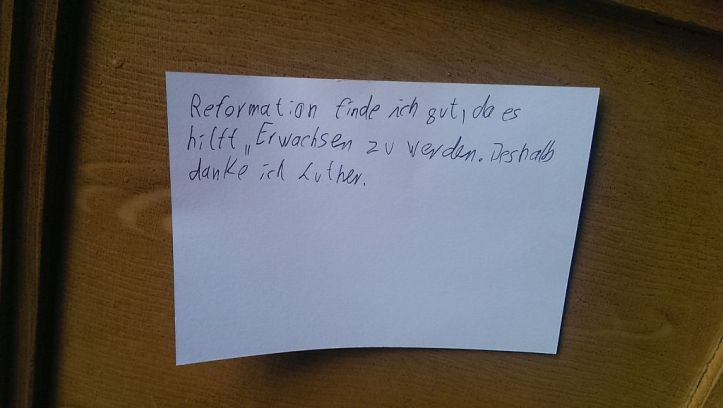 Reformation finde ich gut, da es
hilft „Erwachsen zu werden. Deshalb
danke ich Luther.